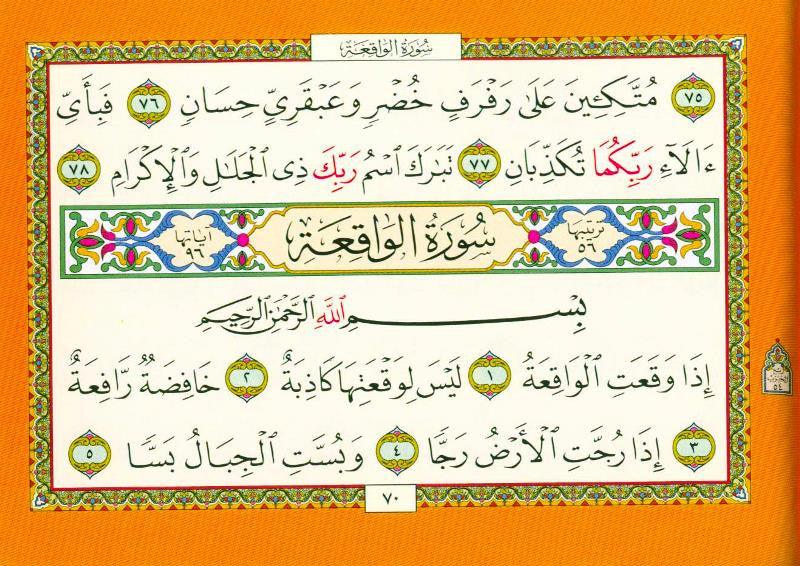 سُورَةُ الوَاقِعَةِ
٧٥ مُتَّكِـِٔينَ عَلَىٰ رَفْرَفٍ خُضْرٍ وَعَبْقَرِيٍّ حِسَانٍ ٧٦ فَبِأَىِّ
ءَالَآءِ رَبِّكُمَا تُكَذِّبَانِ ٧٧ تَبَٰرَكَ ٱسْمُ رَبِّكَ ذِى ٱلْجَلَٰلِ وَٱلْإِكْرَامِ ٧٨
ترتيبها ٥٦ سُورَةُ الوَاقِعَةِ آياتها ٩٦
بِسْمِ ٱللَّهِ ٱلرَّحْمَٰنِ ٱلرَّحِيمِ
إِذَا وَقَعَتِ ٱلْوَاقِعَةُ ١ لَيْسَ لِوَقْعَتِهَا كَاذِبَةٌ ٢ خَافِضَةٌ رَّافِعَةٌ
٣ إِذَا رُجَّتِ ٱلْأَرْضُ رَجًّا ٤ وَبُسَّتِ ٱلْجِبَالُ بَسًّا ٥
٧٠